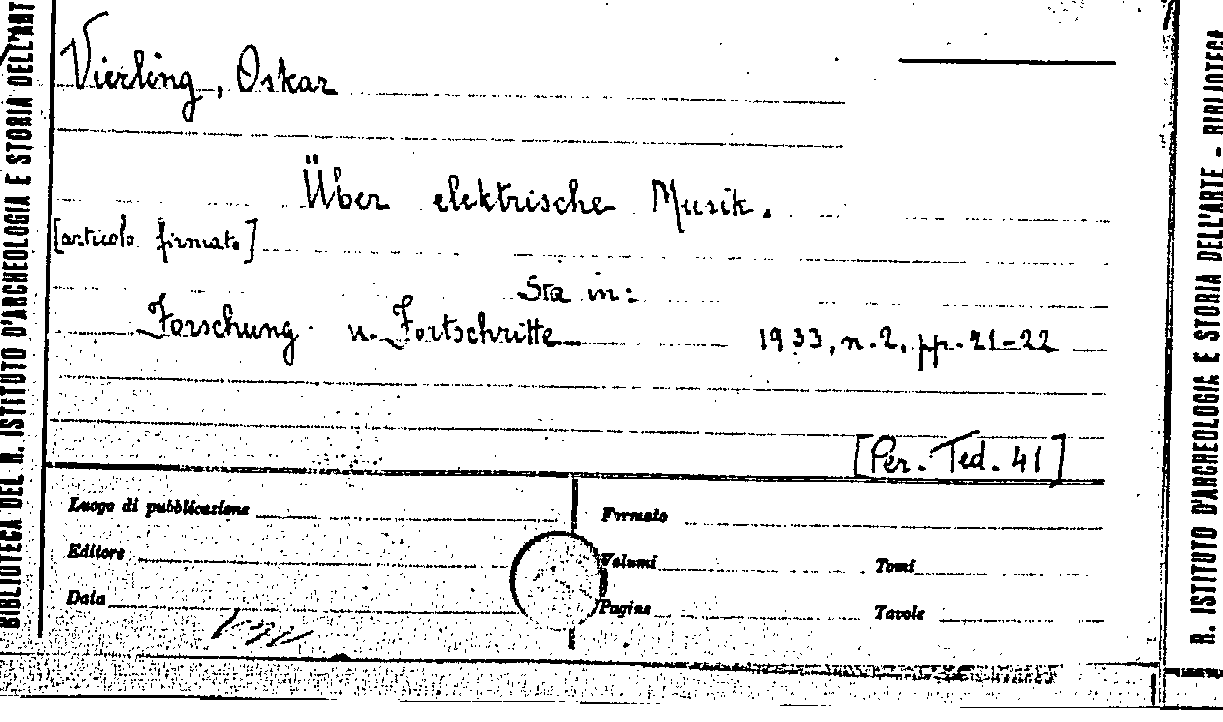 Vierling, Oskar
Über elektrische Musik.
[articolo firmato]
Sta in:
Forschung u. Fortschritte 1933, n. 2, pp. 21-22
[Per. Ted. 41]
Luogo di pubblicazione
Formato
Editore
Volumi
Tomi
Data
Pagine
Tavole
BIBLIOTECA DEL R. ISTITUTO D'ARCHEOLOGIA E STORIA DELL'ART
R. ISTITUTO D'ARCHEOLOGIA E STORIA DELL'ARTE - BIBLIOTECA